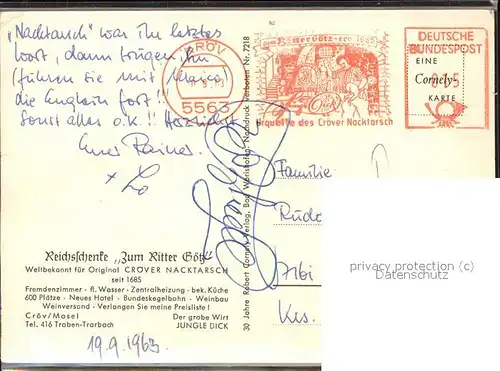 "Nacktarsch" war ihr letztes
Wort, dann trugen ihn
(führen sie mit
die Englein fort!!
Sonst alles o.k.!! Herzlichst
Euer Rainer.
+
CRÖV
5563
DEUTSCHE
BUNDESPOST
EINE
Cornely-
KARTE
Urquelle des Cröver Nacktarsch
30 Jahre Robert Cornely-Verlag, Bad Wörishofen, Nachdruck verboten Nr. 7218
Familie
Reichsschenke „Zum Ritter Götz"
Weltbekannt für Original CRÖVER NACKTARSCH
seit 1685
Fremdenzimmer · fl. Wasser · Zentralheizung · bek. Küche
600 Plätze · Neues Hotel · Bundeskegelbahn · Weinbau
Weinversand · Verlangen Sie meine Preisliste!
Cröv/Mosel Der grobe Wirt
Tel. 416 Traben-Trarbach JUNGLE DICK
Krs.
19.9.1963
privacy protection (c)
Datenschutz